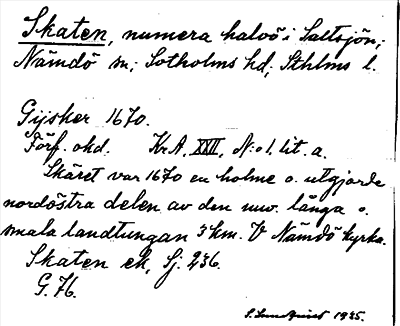 Skaten, numera halvö i Saltsjön;
Nämdö sn; Sotholms hd; Sthlms l.
Gijsker 1670.
Förf. okd. Kr. A. XXII, N:o 1. lit. a.
Skäret var 1670 en holme o. utgjorde
nordöstra delen av den nuv. långa o.
smala landtungan 3 km. V Nämdö kyrka.
Skaten ek, Sj. 236.
G. 76.
S. Lundquist 1925.